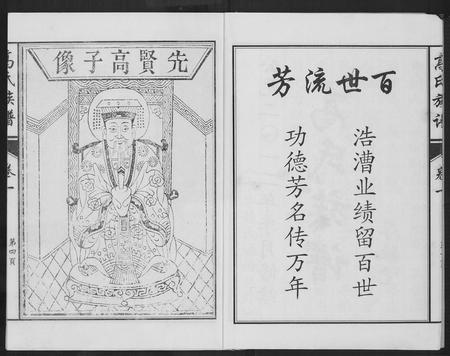 百世流芳
浩漕业绩留百世
功德芳名传万年
高氏族谱
卷一
先賢高子像
高氏族譜
卷一
第四頁